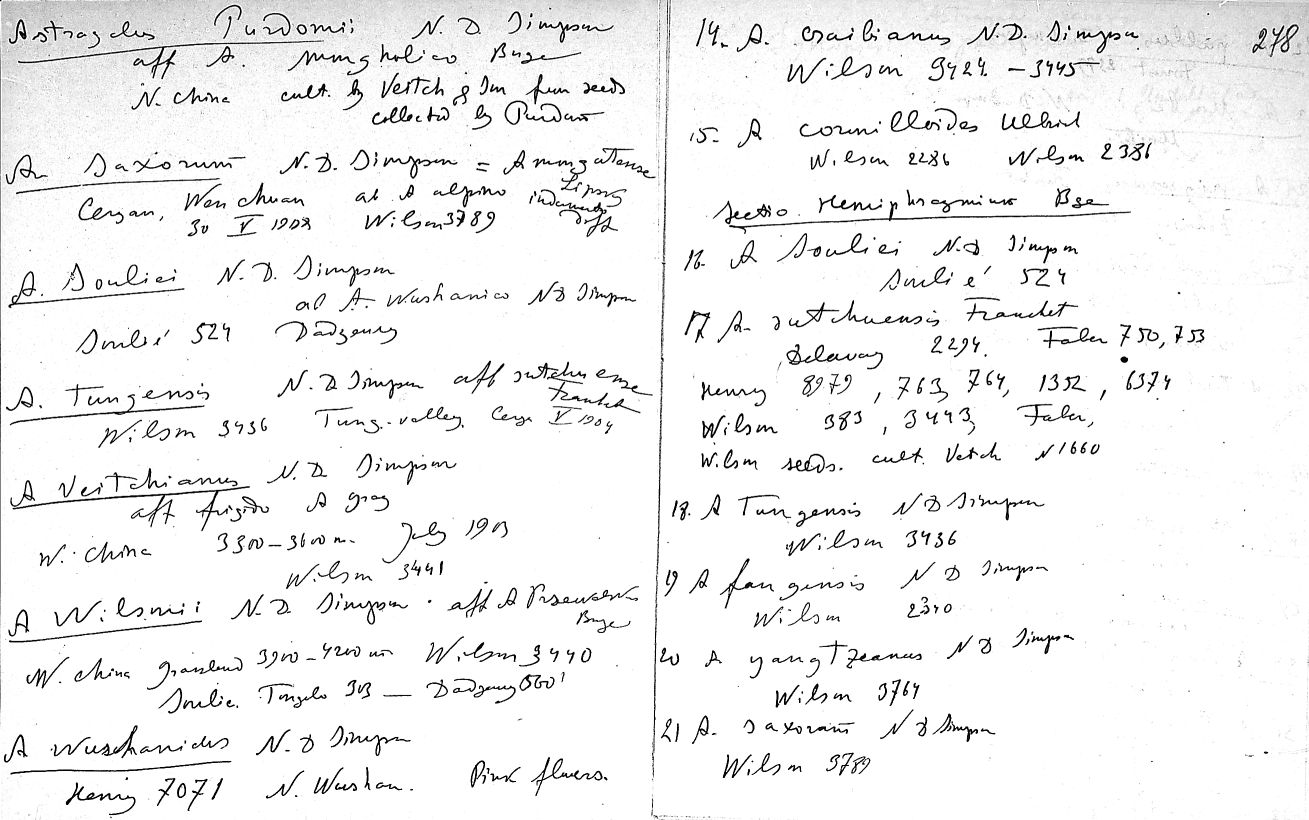 Astragalus Purdomii N. D. Simpson
aff A. mongholico Bunge
N. China cult. by Veitch & Son from seeds
collected by Purdom
A. Saxorum N. D. Simpson =
Wenchuan ab A alpino
30 V 1908 Wilson 3789
A. Souliei N. D. Simpson
ab A. Wushanico N D Simpson
Soulié 524
A. Tungensis N. D Simpson aff sutchuense
Franchet
Wilson 3436 Tung-valley, V 1904
A Veitchianus N. D. Simpson
aff frigido A gray
W. China 3300-3600 m. July 1903
Wilson 3441
A Wilsonii N. D. Simpson. aff A Przewalskii
Bunge
W. China grassland 3900-4200 m Wilson 3440
Soulie. Tongolo 303
A Wushanicus N. D Simpson
Henry 7071 N. Wushan. Pink flowers.
278
14. A. craibianus N. D. Simpson
Wilson 3424 - 3445
15. A Ulbrich
Wilson 2286 Wilson 2386
Sectio. Hemiphragmium Bge
16. A Souliei N. D Simpson
Soulié 524
17 A. sutchuensis Franchet
Delavay 2294. Faber 750, 753
Henry 8979, 763, 764, 1352, 6374
Wilson 383, 3443, Faber,
Wilson seeds. cult. Veitch N 1660
18. A Tungensis N D Simpson
Wilson 3436
19 A fangensis N D Simpson
Wilson
20 A yangtzeanus N D Simpson
Wilson 3764
21 A. saxorum N D Simpson
Wilson 3789